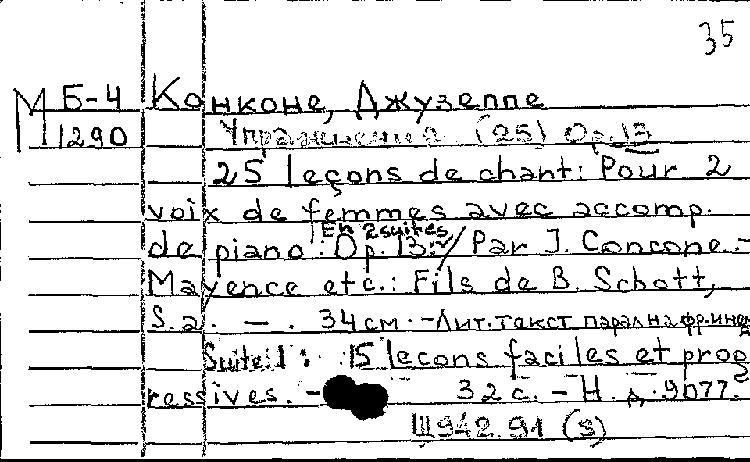 35
М Б-4 Конконе, Джузеппе
1290 Упражнения (25) Op. 13
25 leçons de chant: Pour 2
voix de femmes avec accomp.
En 2 suites
de piano: Op. 13. / Par J. Concone. -
Mayence etc.: Fils de B. Schott,
S.a. - . 34 см. - Лит. текст парал на фр. и нем
Suite 1: 15 lecons faciles et prog
ressives. - 32 с. - Н. д. 9077.
Щ942.91 (3)